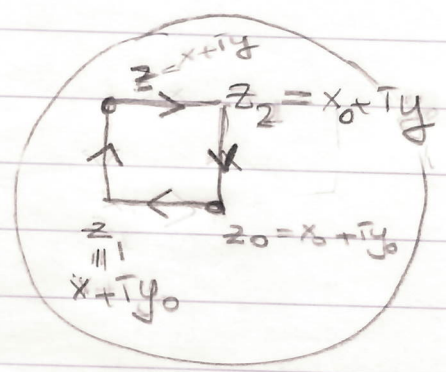 z = x+iy
z₂ = x₀+iy
z₀ = x₀ + iy₀
z₁
=
x+iy₀